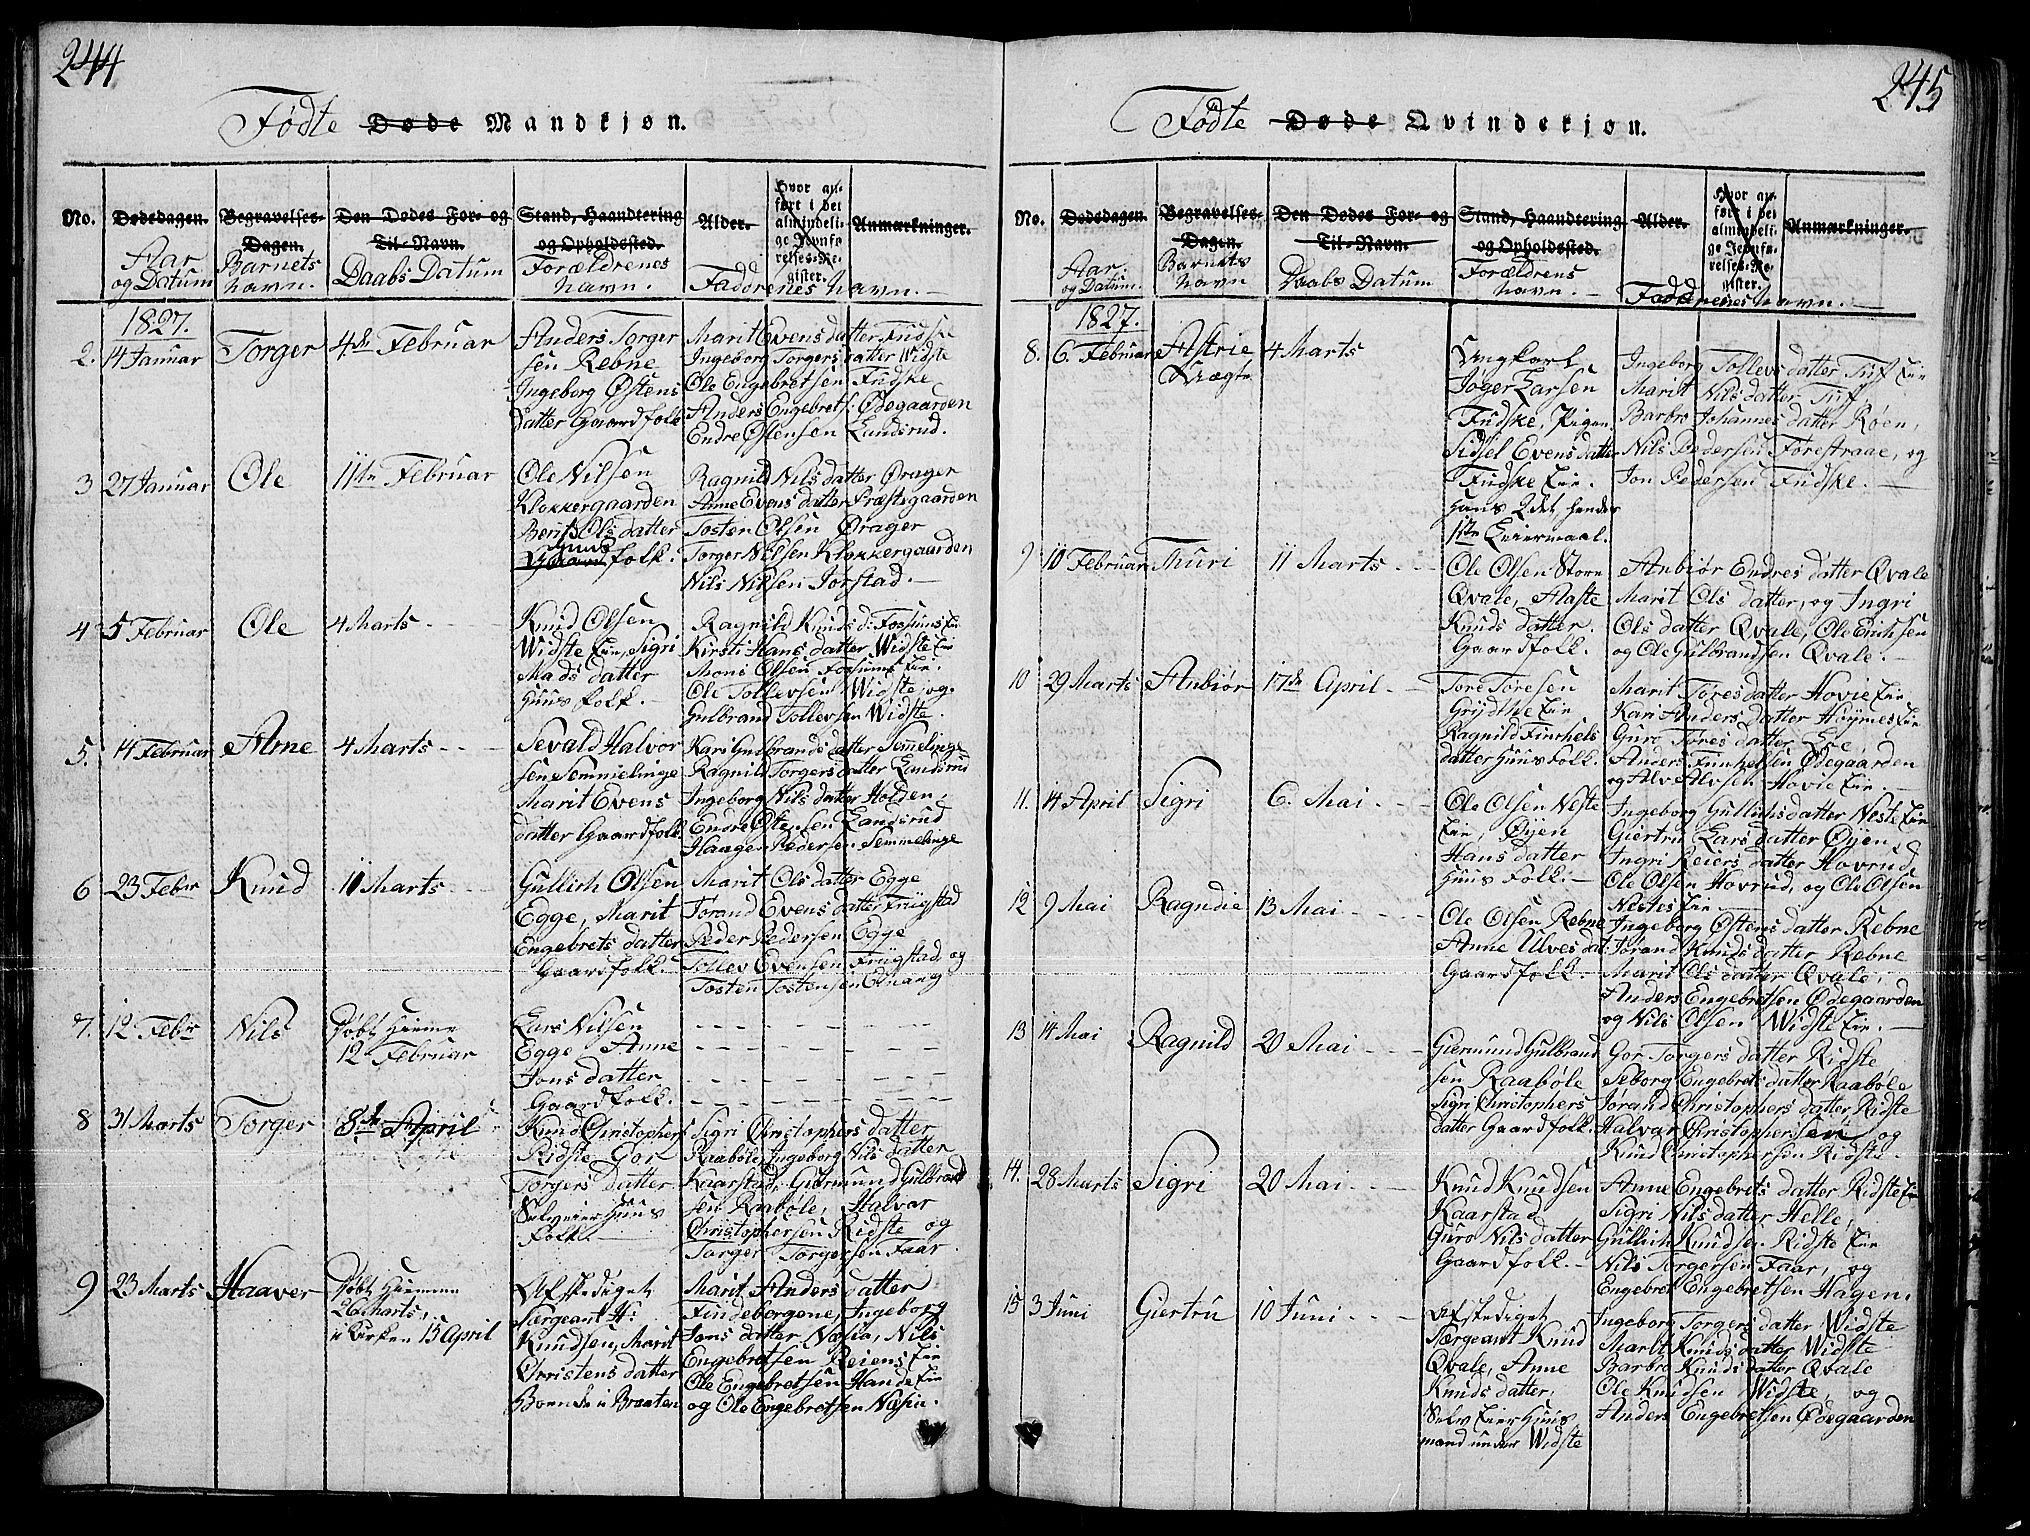 244
Fødte Døde Mandkjøn.
No. Dødedagen. Begravelses-Dagen. Den Dødes For- og Til-Navn. Stand, Haandtering og Opholdssted. Alder. Hvor anført i det almindelige Jevnførelses-Register. Anmærkninger.
Aar og Datum
Barnets Navn.
Daabs Datum
Forældrenes Navn.
Faddrenes Navn.
1827.
2. 14 Januar Torger 4de Februar
Anders Torger
sen Rebne
Ingeborg Østens
datter Gaardfolk
Marit Evensdatter Fudske
Ingeborg Torgersdatter Widste
Ole Engebretsen Fudske
Anders Engebrets: Ødegaarden
Endre Østensen Landsrud.
3 27 Januar Ole 11te Februar
Ole Nilsen
Klokkergaarden
Berit Olsdatter
Gaard Huus folk.
Ragnild Nilsdatter Ørager
Anne Evensdatter Præstegaarden
Tosten Olsen Ørager
Torger Nilsen Klokkergaarden
Nils Nilsen Jorstad.
4 5 Februar Ole 4 Marts
Knud Olsen
Widste Eie, Sigri
Mads datter
Huusfolk.
Ragnild Knuds d: Fossums Eie
Kirsti Hans datter Widste Eie
Moni Olsen Fossums Eie.
Ole Tollevsen Widste, og
Gulbrand Tollevsen Widste.
5. 14 Februar Arne 4 Marts
Sevald Halvor
sen Semmelinge
Marit Evens
datter Gaardfolk
Kari Gulbrands datter Semmelinge
Ragnild Torgers datter Landsrud
Ingeborg Nils datter Holden,
Endre Østensen Landsrud
Haagen Pedersen Semmelinge
6 23 Febr Knud 11 Marts
Gullich Olsen
Egge, Marit
Engebrets datter
Gaardfolk.
Marit Ols datter Egge
Jorand Evens datter Frügstad
Peder Pedersen Egge
Tollev Evensen Frügstad og
Tosten Tostensen Onang
7. 12 Febr Nils
Døbt hiemme
12 Februar
Lars Nilsen
Egge Anne
Jons datter
Gaardfolk.
8 31 Marts Torger 8de April
Knud Christophers
Ridste Gor
Torgers datter
Selveier Huus
folk.
Sigri Christophers datter
Raabøle, Ingeborg Nils datter
Kaarstad, Giermund Gulbrand
sen Raabøle, Halvar
Christophersen Ridste og
Torger Torgersen Faar
9 23 Marts Haaver
Døbt hiemme
26 Marts,
i Kirken 15 April
Afskediget
Sergeant H:
Knudsen, Marit
Christens datter
Boende i Braaten
Marit Anders datter
Findebergene, Ingeborg
Jons datter Næsia, Nils
Engebretsen Reiens Eie
Ole Engebretsen Hande Eie
og Ole Engebretsen Næsia.
245
Fødte Døde Qvindekjøn.
No. Dødedagen. Begravelses-Dagen. Den Dødes For- og Til-Navn. Stand, Haandtering og Opholdssted. Alder. Hvor anført i det almindelige Jevnførelses-Register. Anmærkninger.
Aar og Datum.
Barnets Navn
Daabs Datum
Forældrens Navn.
Faddrenes Navn.
1827.
8. 6. Februar Astrie
Uægte
4 Marts
Ungkarl
Joger Larsen
Fudske, Pigen
Sidsel Evens datter
Fudske Eie.
Hans 2det, hendes
1ste Leiermaal.
Ingeborg Tollevs datter Tuf Eie
Marit Nils datter Tuf,
Barbro Johannes datter Røen,
Nils Pedersen Førestraae, og
Jon Pedersen Fudske.
9 10 Februar Thuri 11 Marts
Ole Olsen Store
Qvale, Aaste
Knuds datter.
Gaardfolk.
Anbiør Endres datter Qvale
Marit Ols datter, og Ingri
Ols datter Qvale, Ole Erichsen
og Ole Gulbrandsen Qvale.
10 29 Marts Anbiør 17de April
Tore Toresen
Grydthe Eie
Ragnild Finchels
datter Huusfolk.
Marit Tores datter Hovie Eie
Kari Anders datter Høymes Eie
Guro Tores datter Loe,
Anders Finchelsen Ødegaarden
og Alv Alvsen Hovie Eie.
11. 14 April Sigri 6. Mai
Ole Olsen Neste
Eie, Øijen
Hans datter
Huus folk.
Ingeborg Gullichs datter Neste Eie
Giertru Lars datter Øijen,
Ingri Reiers datter Hovrud,
Ole Olsen Hovrud, og Ole Olsen
Nestes Eie
12 9 Mai Ragndie 13 Mai
Ole Olsen Rebne
Anne Ulves dat:
Gaardfolk.
Ingeborg Østens datter Rebne
Jorand Knuds datter Rebne
Marit Ols datter Qvale,
Anders Engebretsen Ødegaarden
og Nils Olsen Widste Eie.
13 14 Mai Ragnild 20 Mai
Giermund Gulbrand
sen Raabøle
Sigri Christophers
datter Gaardfolk.
Gor Torgers datter Ridste
Seborg Engebrets datter Raabøle
Jorand Christophers datter Ridste
Halvar Christophersen og
Knud Christophersen Ridste.
14. 28 Marts Sigri 20 Mai
Knud Knudsen
Kaarstad
Guro Nils datter
Gaardfolk.
Anne Engebrets datter Ridste Eie
Sigri Nils datter Helle,
Gullich Knudsen Ridste Eie
Nils Torgersen Faar, og
Engebret Engebretsen Hagen.
15 3 Juni Giertru 10 Juni
Afskediget
Sergeant Knud
Qvale, Anne
Knuds datter,
Selv Eier Huus
mand under Widste
Ingeborg Torgers datter Widste
Marit Knuds datter Widste
Barbro Knuds datter Qvale
Ole Knudsen Widste, og
Anders Engebretsen Ødegaarden